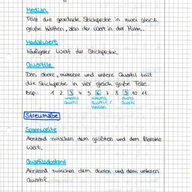 Median
Teilt die geordnete Stichprobe in zwei gleich
große Hälften, also der Wert in der Mitte.
Modalwert
Häufigster Wert der Stichprobe.
Quartile
Das obere, mittlere und untere Quartil teilt
die Stichprobe in vier gleich große Teile.
Bsp. 1 2 3 4 5 6 7 8 9 10 11
Streumaße
Spannweite
Abstand zwischen dem größten und dem kleinsten
Wert.
Quartilsabstand
Abstand zwischen dem oberen und dem unteren
Quartil.